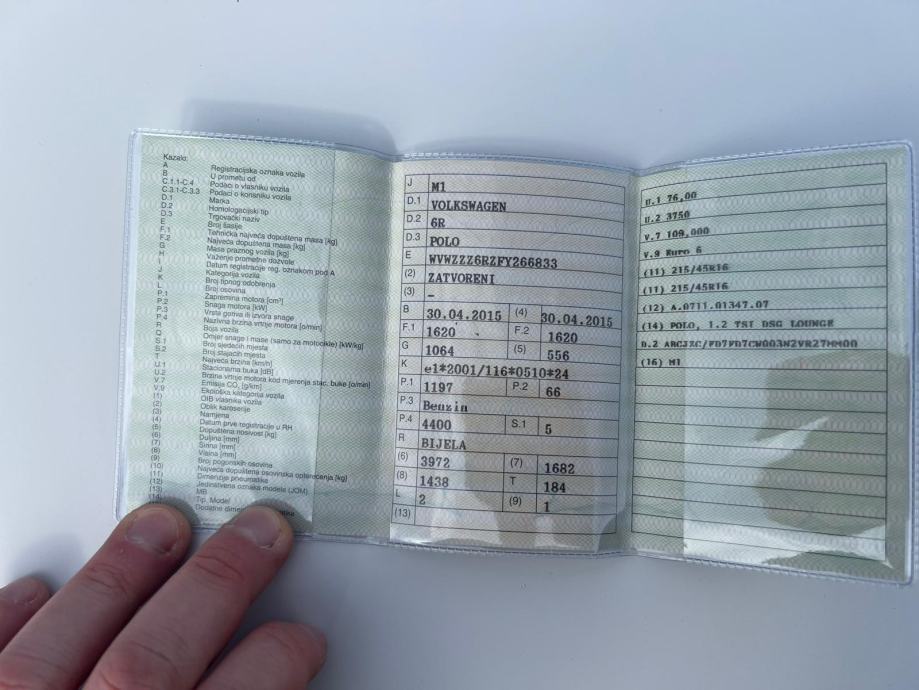 Kazalo:
A Registracijska oznaka vozila
B U prometu od
C.1.1-C.4 Podaci o vlasniku vozila
C.3.1-C.3.3 Podaci o korisniku vozila
D.1 Marka
D.2 Homologacijski tip
D.3 Trgovački naziv
E Broj šasije
F.1 Tehnička najveća dopuštena masa [kg]
F.2 Najveća dopuštena masa [kg]
G Masa praznog vozila [kg]
H Važenje prometne dozvole
I Datum registracije reg. oznakom pod A
J Kategorija vozila
K Broj tipnog odobrenja
L Broj osovina
P.1 Zapremina motora [cm³]
P.2 Snaga motora [kW]
P.3 Vrsta goriva ili izvora snage
P.4 Nazivna brzina vrtnje motora [o/min]
R Boja vozila
Q Omjer snage i mase (samo za motocikle) [kW/kg]
S.1 Broj sjedećih mjesta
S.2 Broj stajaćih mjesta
T Najveća brzina [km/h]
U.1 Stacionarna buka [dB]
U.2 Brzina vrtnje motora kod mjerenja stac. buke [o/min]
V.7 Emisija CO₂ [g/km]
V.9 Ekološka kategorija vozila
(1) OIB vlasnika vozila
(2) Oblik karoserije
(3) Namjena
(4) Datum prve registracije u RH
(5) Dopuštena nosivost [kg]
(6) Duljina [mm]
(7) Širina [mm]
(8) Visina [mm]
(9) Broj pogonskih osovina
(10) Najveća dopuštena osovinska opterećenja [kg]
(11) Dimenzije pneumatika
(12) Jedinstvena oznaka modela (JOM)
(13) MB
Tip, Model
Dodatne
J M1
D.1 VOLKSWAGEN
D.2 6R
D.3 POLO
E WVWZZZ6RZFY266833
(2) ZATVORENI
(3) –
B 30.04.2015 (4) 30.04.2015
F.1 1620 F.2 1620
G 1064 (5) 556
K e1*2001/116*0510*24
P.1 1197 P.2 66
P.3 Benzin
P.4 4400 S.1 5
R BIJELA
(6) 3972 (7) 1682
(8) 1438 T 184
L 2 (9) 1
(13)
U.1 76,00
U.2 3750
V.7 109,000
V.9 Euro 6
(11) 215/45R16
(11) 215/45R16
(12) A.0711.01347.07
(14) POLO, 1.2 TSI DSG LOUNGE
D.2 ABCJZC/FD7FD7CW003N2VR27MM00
(16) M1